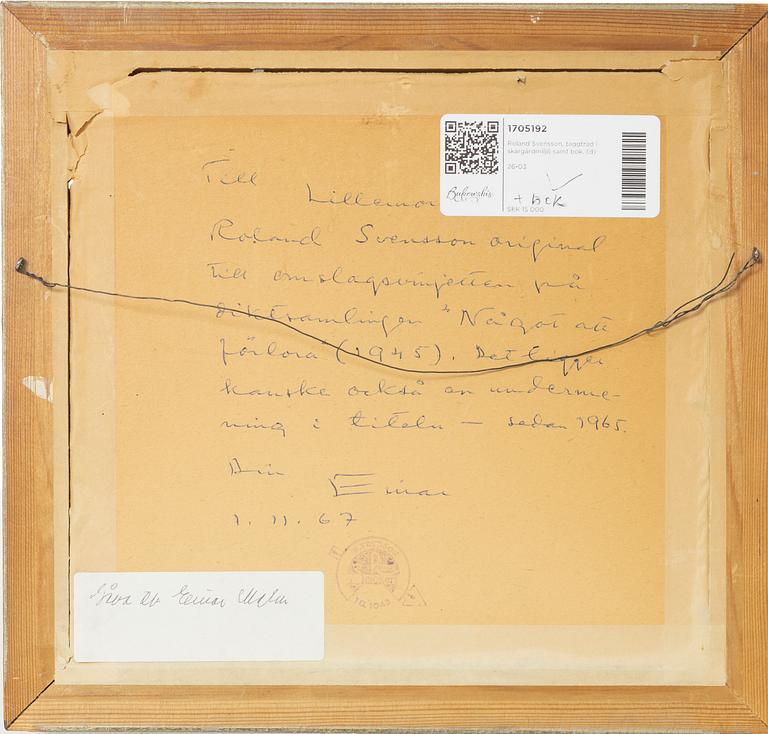 1705192
Roland Svensson, taggtråd i
skärgårdmiljö samt bok. (d)
26-03
Bukowskis
+ BOK
SEK 15 000
Till Lillemor
Roland Svensson original
till omslagsvinjetten på
diktsamlingen "Något att
förlora" (1945). Det ligger
kanske också en underme-
ning i titeln – sedan 1965.
Din
Einar
1. 11. 67
Gåva av Einar Malm